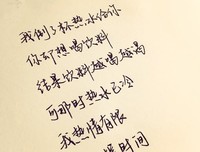 我倒了杯热水给你
你却想喝饮料
结果饮料越喝越渴
可那时热水已冷
我热情有限
时间